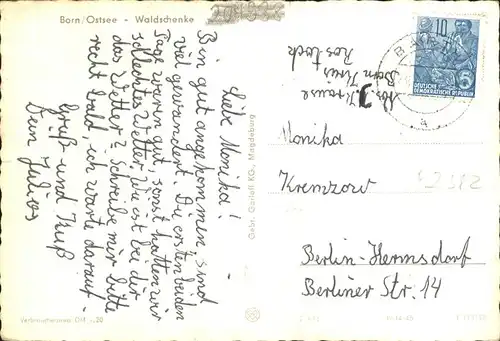 Born/Ostsee - Waldschenke
Liebe Monika!
Bin gut angekommen, sind
viel gewandert. Die ersten beiden
Tage waren gut, sonst hatten wir
schlechtes Wetter. Wie ist bei dir
das Wetter? Schreibe mir bitte
recht bald, ich warte darauf.
Gruß und Kuß
Dein Julios
Abs. J. Krause
Born
Rostock
10
5
DEUTSCHE
DEMOKRATISCHE REPUBLIK
a
Monika
Kremzow
Berlin-Hermsdorf
Berliner Str. 14
Gebr. Garloff KG., Magdeburg